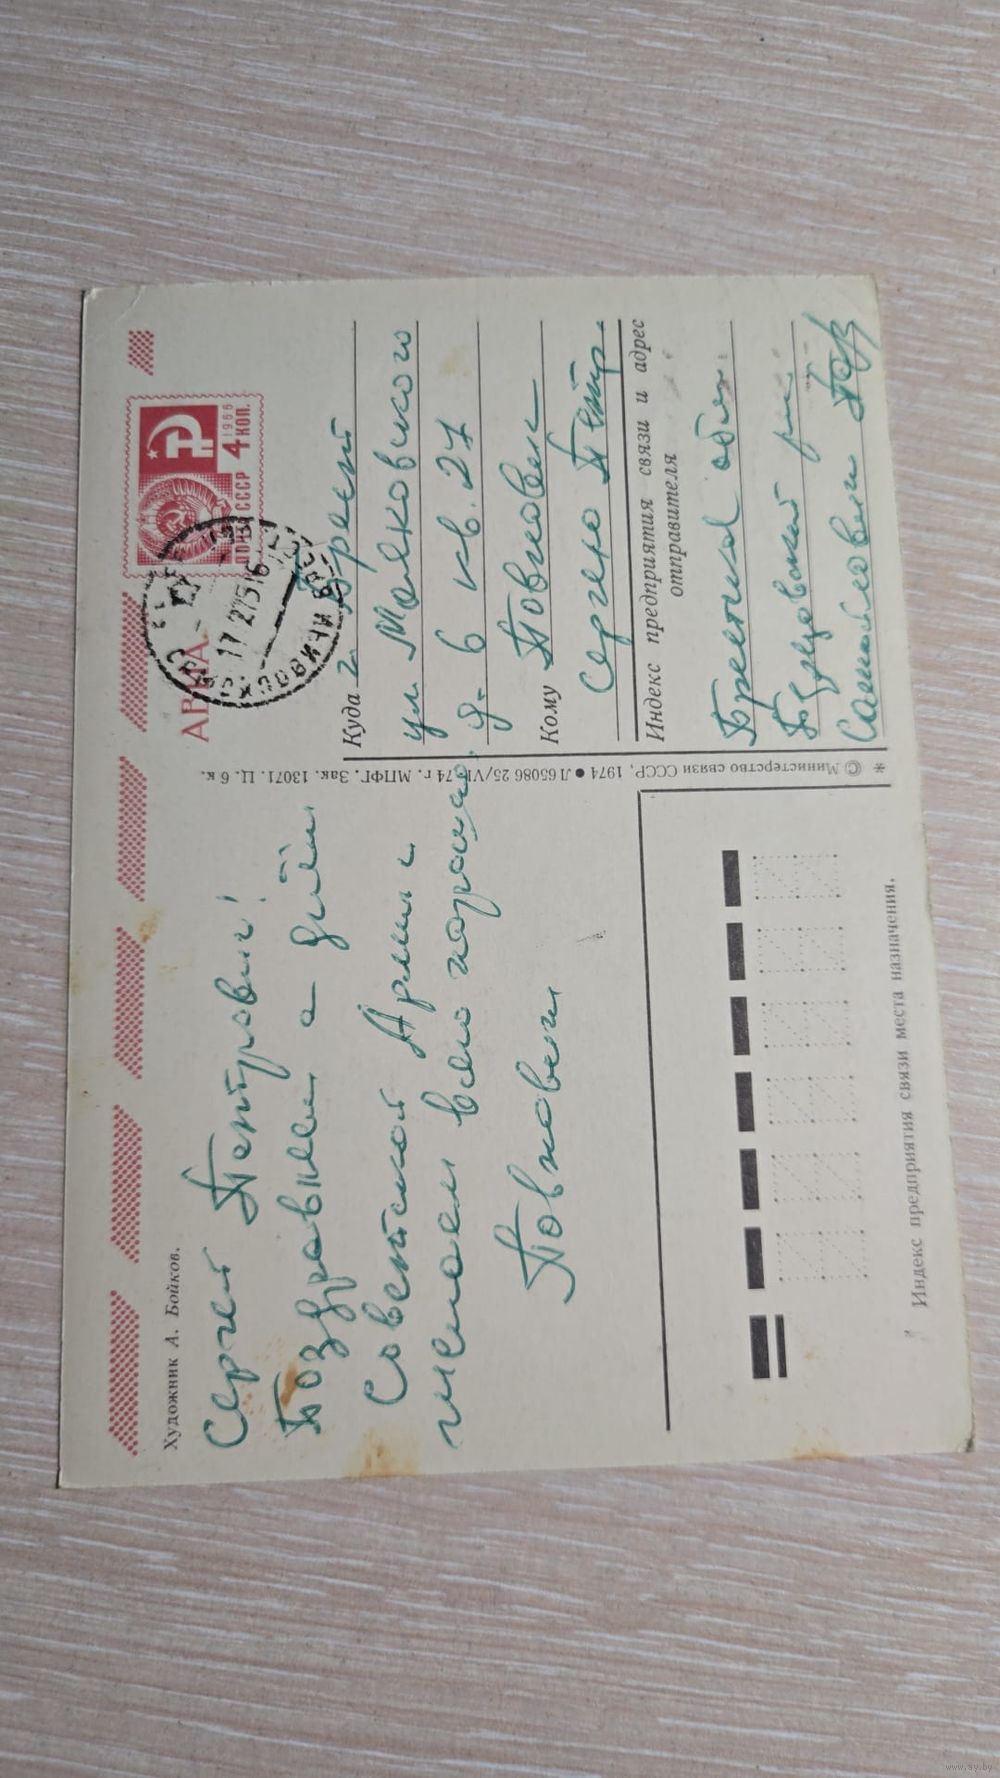 Художник А. Бойков.
АВИА
ПОЧТА СССР 4 КОП.
1966
Сергей Петрович!
Поздравляем с днём
Советской Армии с
желаем всего хорошего.
Повковец
Куда г. Брест
ул. Маяковского
д. 6 кв. 27
Кому
Сергею Петр.
Индекс предприятия связи и адрес
отправителя
Брестская облас.
Самойловичи
© Министерство связи СССР, 1974 • Л 65086 25/VI-74 г. МПФГ. Зак. 13071. Ц. 6 к.
Индекс предприятия связи места назначения.
www.ay.by